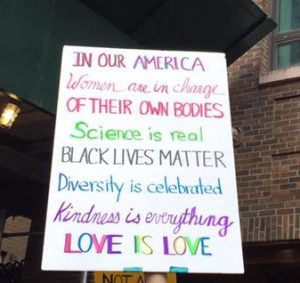 IN OUR AMERICA
Women are in charge
OF THEIR OWN BODIES
Science is real
BLACK LIVES MATTER
Diversity is celebrated
Kindness is everything
LOVE IS LOVE
NOT A